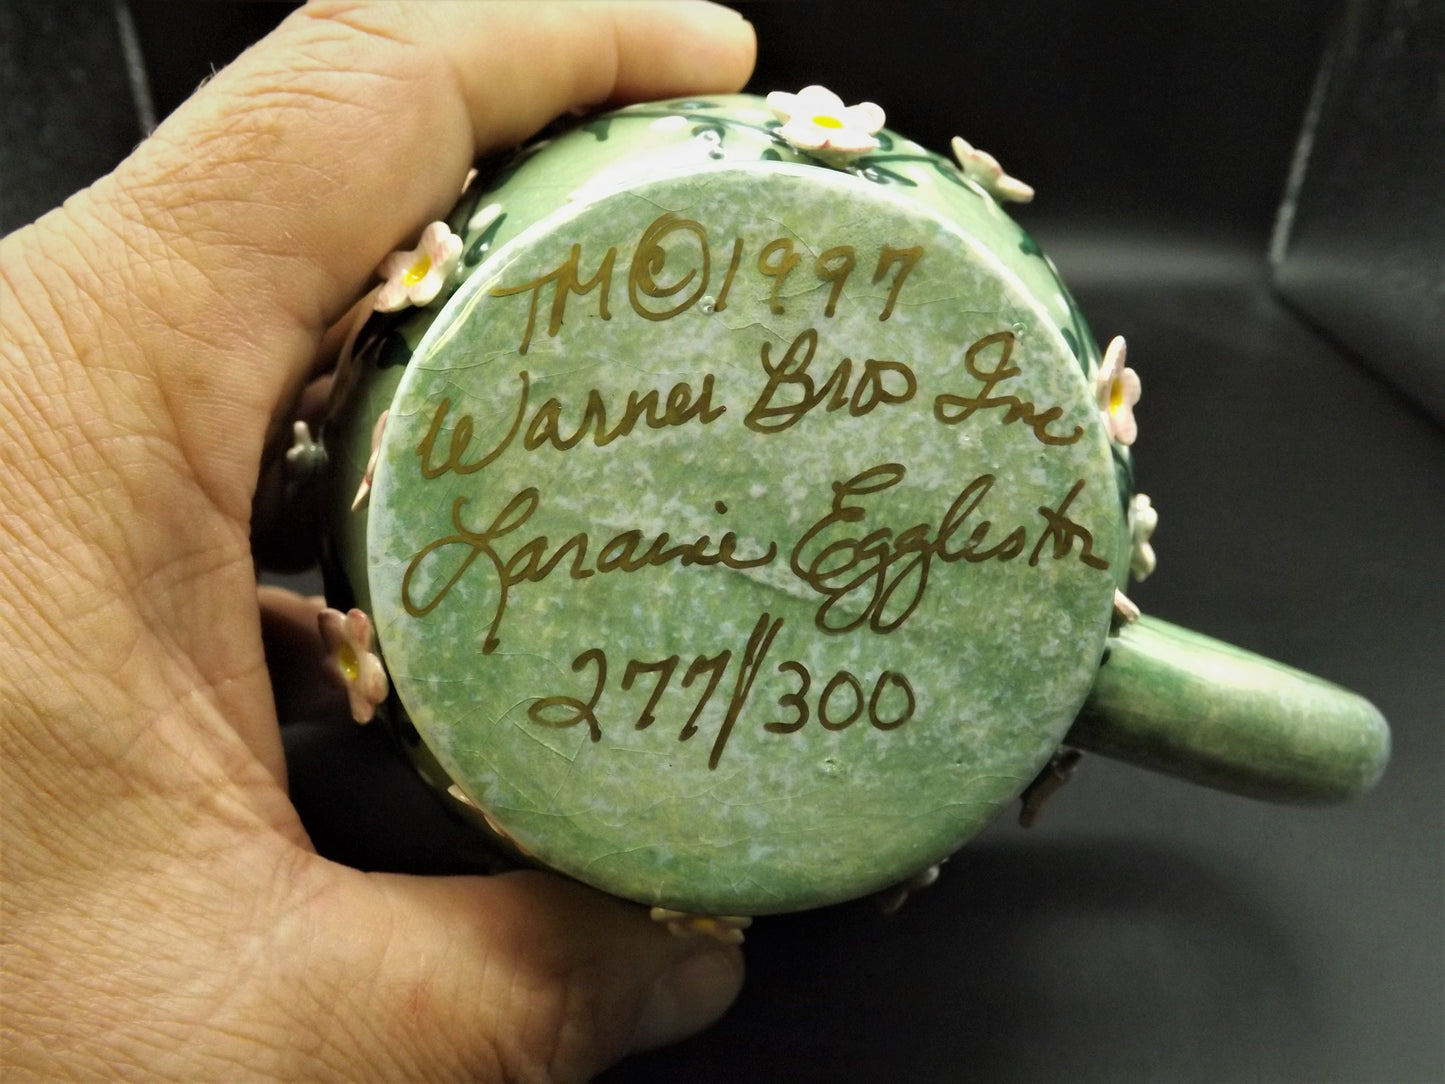 TM © 1997
Warner Bros Inc
Laraine Eggleston
277/300